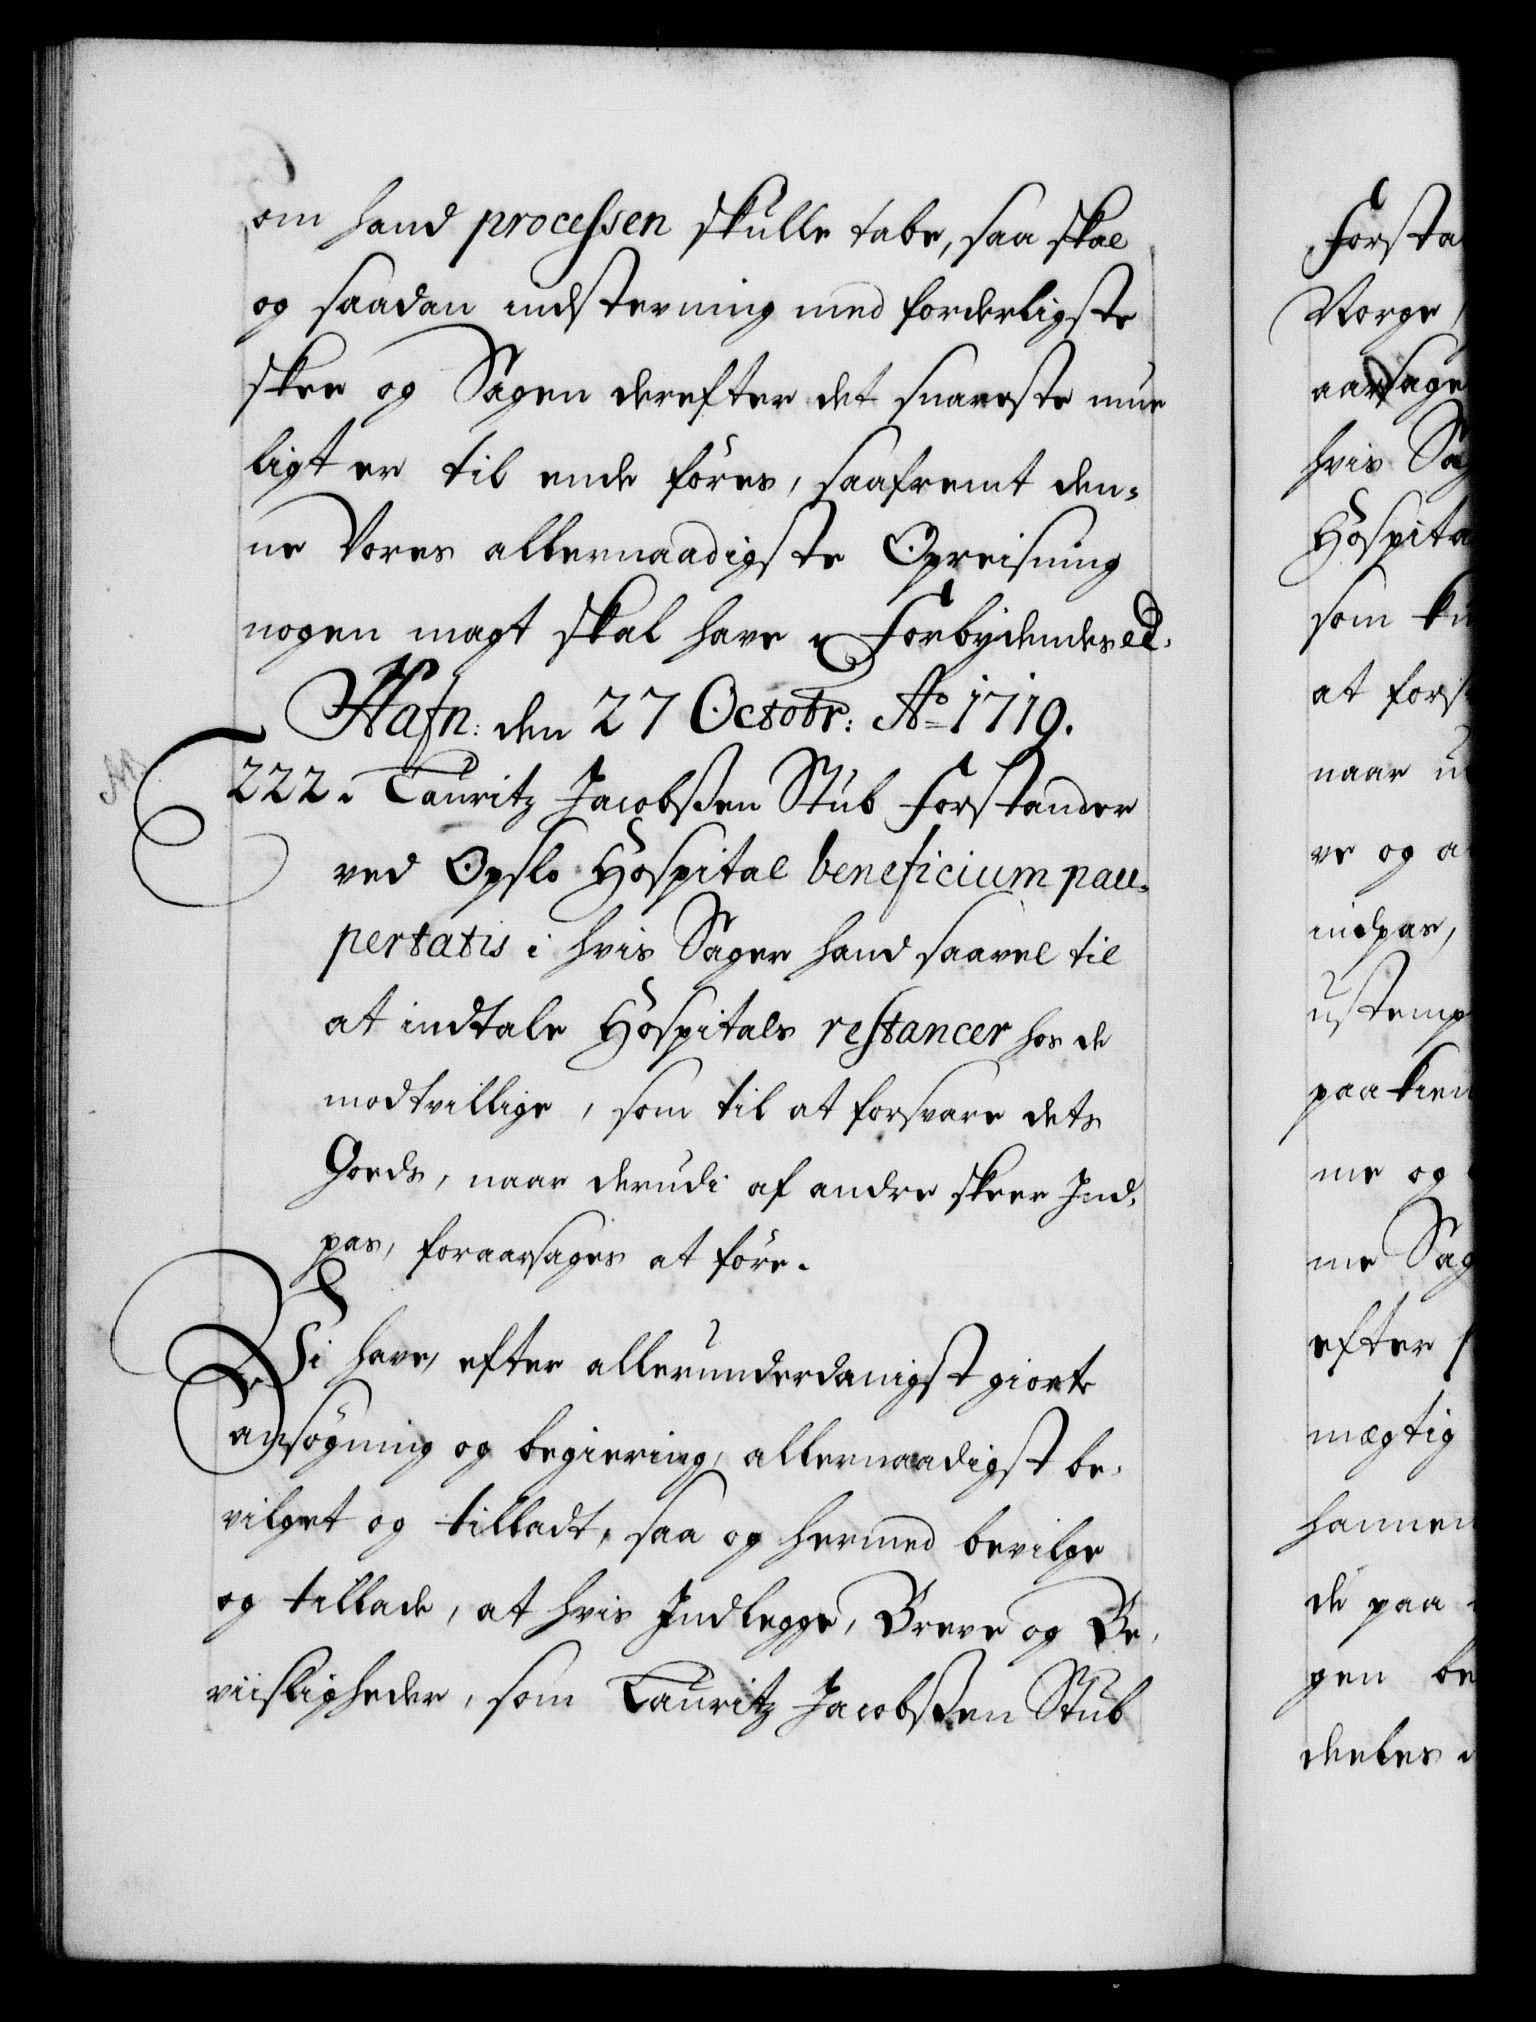 om hand processen skulle tabe, saa skal
og saadan indstevning med forderligste
skee og Sagen derefter det snareste mue
ligt er til ende føres, saafremt den-
ne Vores allernaadigste Opreisning
nogen magt skal have Forbydendes &.
Hafn: den 27 Octobr: Ao 1719.
222. Lauritz Jacobssen Stub Forstander
ved Opslo Hospital beneficium pau-
pertatis i hvis Sager hand saavel til
at indtale Hospitals restancer hos de
modtvillige, som til at forsvare dets
Goeds, naar derudi af andre skeer Ind-
pas, foraarsages at føre.
Vi have, efter allerunderdanigst giorte
ansøgning og begiering, allernaadigst be-
vilget og tilladt, saa og hermed bevilge
og tillade, at hvis Indlegge, Breve og Be-
viisligheder, som Lauritz Jacobssen Stub
Forsta
Norge,
aarsage
hvis Sag
Hospita
som ku
at fors
naar u
ve og a
indpas,
ustemp
paa kien
me og
me Sag
efter
mægtig
hannem
de paa
gen be
deeles